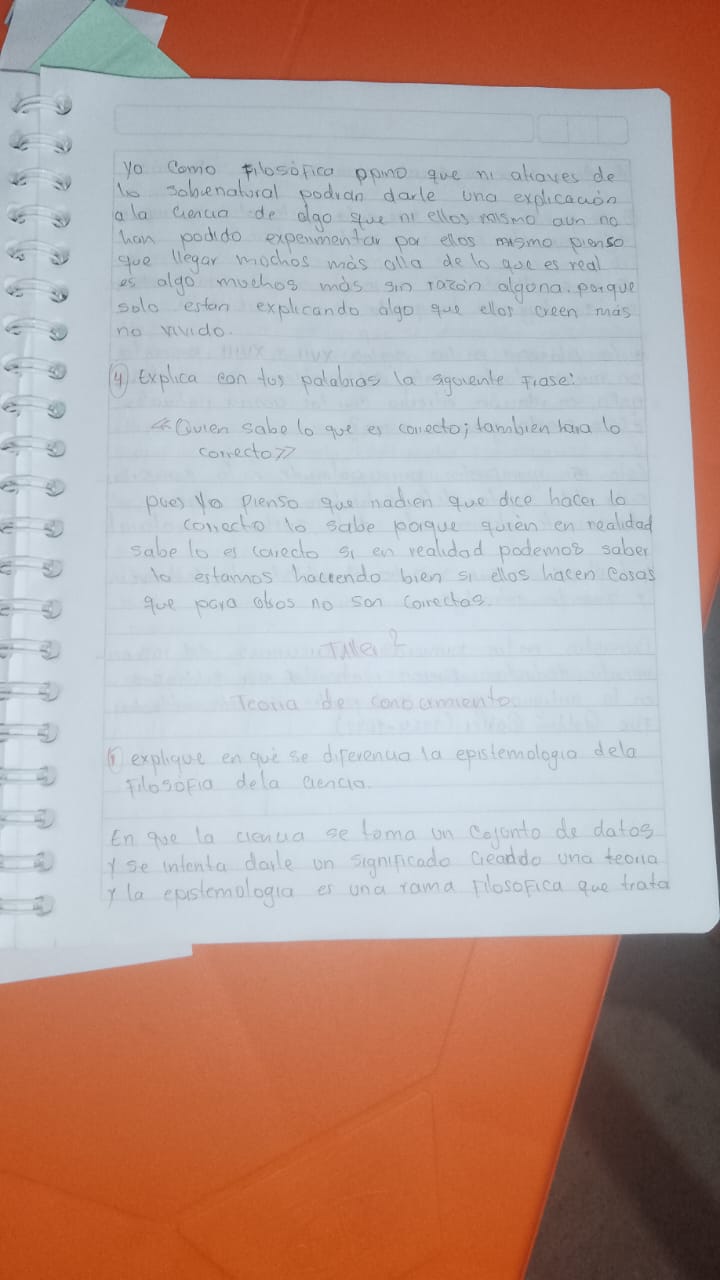 Yo como filosófica opino que ni atraves de
lo sobrenatural podran darle una explicación
a la ciencia de algo que ni ellos mismo aun no
han podido experimentar por ellos mismo pienso
que llegar mochos más alla de lo que es real
es algo muchos más sin razón alguna. porque
solo estan explicando algo que ellos creen más
no vivido.
4) Explica con tus palabras la siguiente Frase:
<<Quien sabe lo que es correcto; tambien hara lo
correcto>>
pues Yo Pienso que nadien que dice hacer lo
correcto lo sabe porque quien en realidad
sabe lo es correcto si en realidad podemos saber
lo estamos haciendo bien si ellos hacen Cosas
que para otros no son Correctas.
Taller 2
Teoria de conocimiento
1) explique en qué se diferencia la epistemologia dela
Filosofia dela ciencia.
En que la ciencia se toma un Cojunto de datos
Y se intenta darle un significado Creaddo una teoria
Y la epistemologia es una rama Filosofica que trata